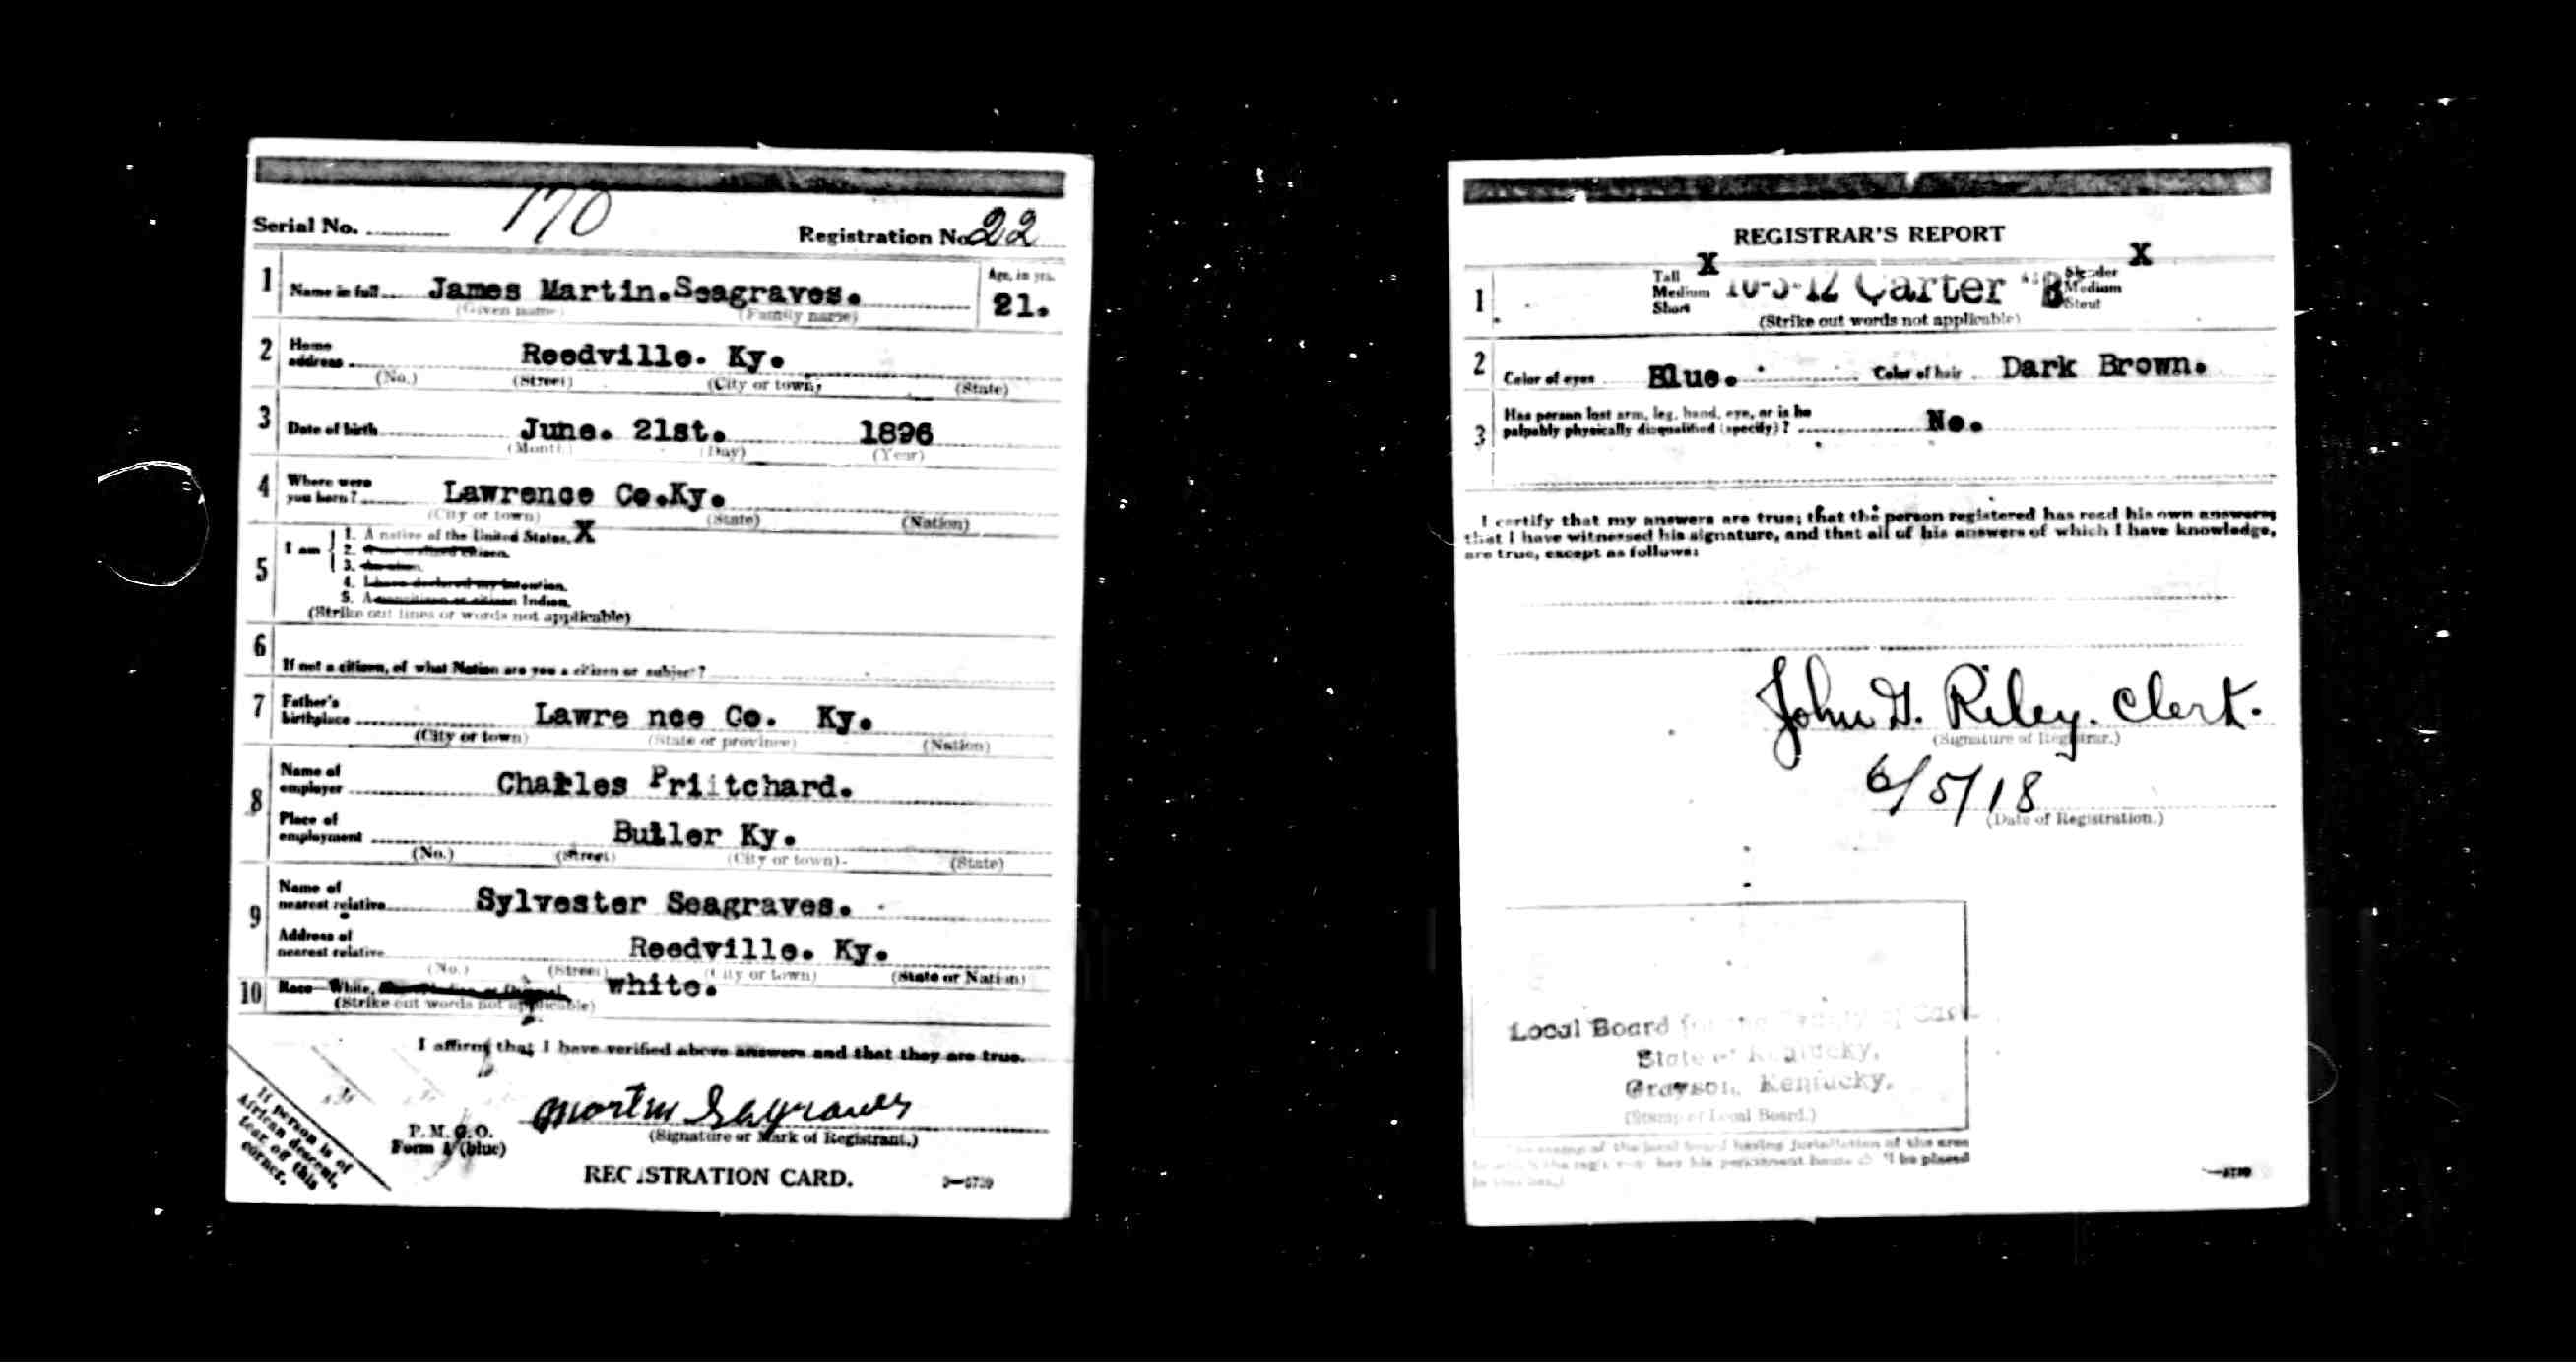 Serial No. 170 Registration No. 22
1 Name in full James Martin.Seagraves. Age, in yrs. 21.
(Given name) (Family name)
2 Home address Reedville. Ky.
(No.) (Street) (City or town) (State)
3 Date of birth June. 21st. 1896
(Month) (Day) (Year)
4 Where were you born? Lawrence Co.Ky.
(City or town) (State) (Nation)
5 I am
1. A native of the United States. X
2. A naturalized citizen.
3. An alien.
4. I have declared my intention.
5. A noncitizen or citizen Indian.
(Strike out lines or words not applicable)
6 If not a citizen, of what Nation are you a citizen or subject?
7 Father's birthplace Lawre nce Co. Ky.
(City or town) (State or province) (Nation)
8 Name of employer Charles Priitchard.
Place of employment Ky.
(No.) (Street) (City or town) (State)
9 Name of nearest relative Sylvester Seagraves.
Address of nearest relative Reedville. Ky.
(No.) (Street) (City or town) (State or Nation)
10 Race—White, white.
(Strike out words not applicable)
I affirm that I have verified above answers and that they are true.
Martin Segraves
(Signature or Mark of Registrant.)
P. M. G. O.
Form 1 (blue)
REGISTRATION CARD.
If person is of
African descent,
tear off this
corner.
REGISTRAR'S REPORT
X X
1 Tall Medium Short 16-3-12 Carter B Slender Medium Stout
(Strike out words not applicable)
2 Color of eyes Blue. Color of hair Dark Brown.
3 Has person lost arm, leg, hand, eye, or is he
palpably physically disqualified (specify)? No.
I certify that my answers are true; that the person registered has read his own answers;
that I have witnessed his signature, and that all of his answers of which I have knowledge,
are true, except as follows:
John G. Riley. Clerk.
(Signature of Registrar.)
6/5/18
(Date of Registration.)
Local Board for the County of
State of Kentucky,
Grayson, Kentucky.
(Stamp of Local Board.)
stamp of the local board having jurisdiction of the area
in which the registrant has his permanent home shall be placed
in this box.)